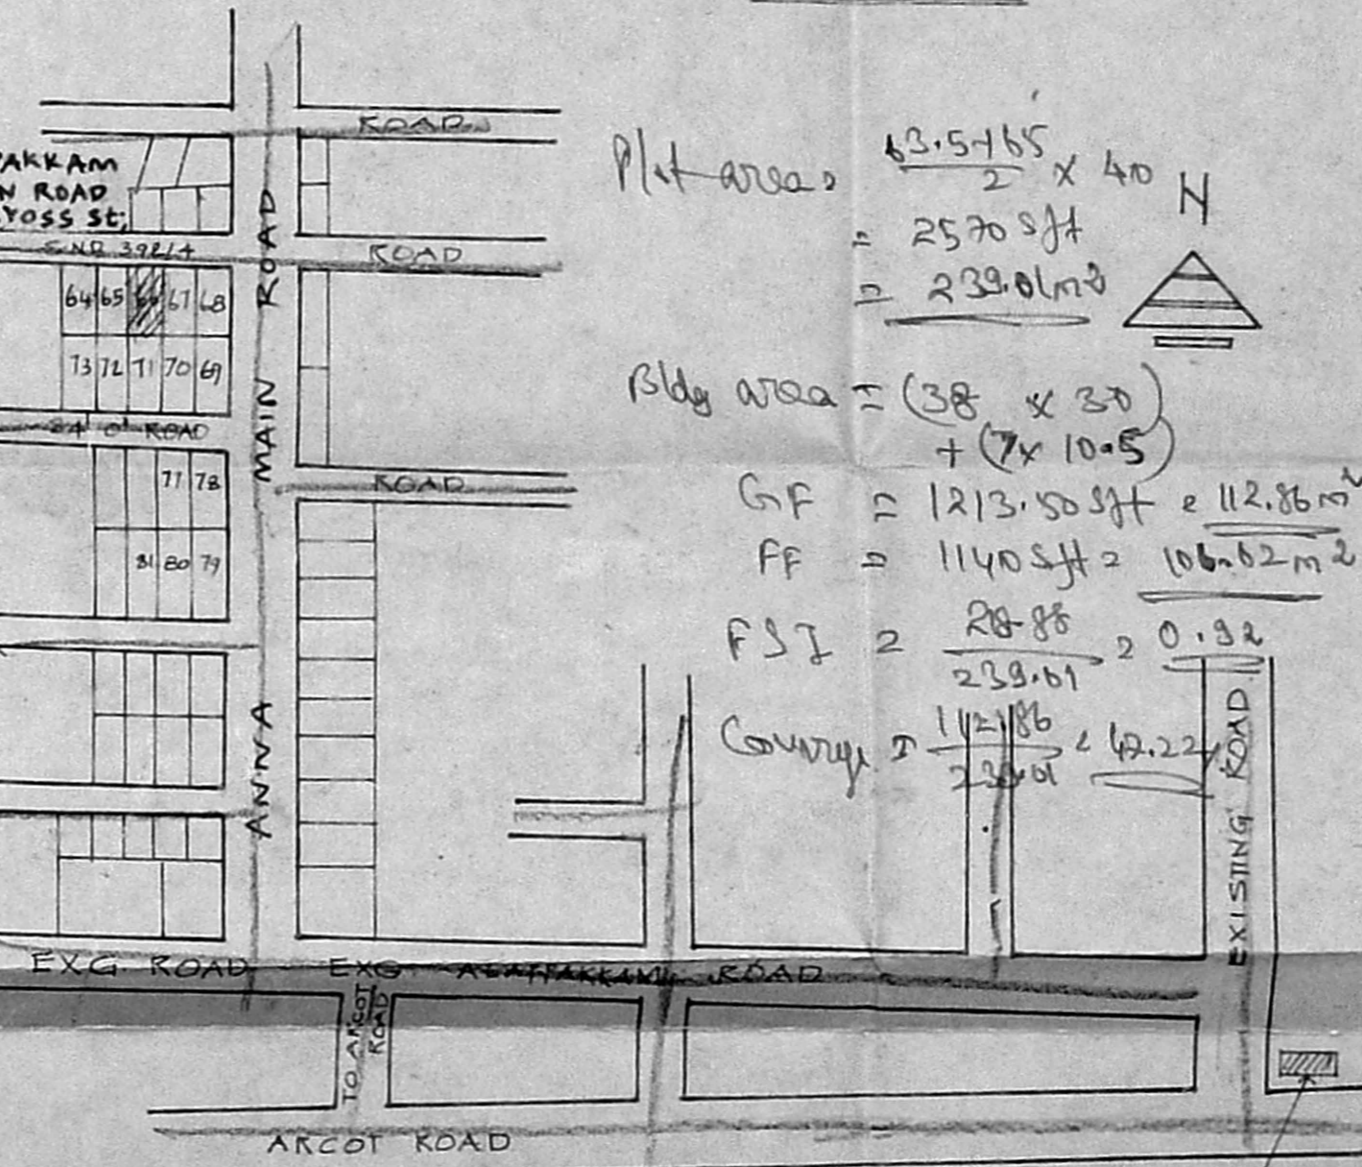 ROAD
AKKAM
N ROAD
ROSS St;
S.NO 392/4
ROAD
64 65 67 68
73 72 71 70 69
24' 0" ROAD
77 78
81 80 79
ROAD
ANNA MAIN ROAD
Plot area = 63.5+65 / 2 × 40
= 2570 sft
= 239.01m²
N
Bldg area = (38 × 30)
+ (7 × 10.5)
GF = 1213.50 sft = 112.86m²
FF = 1140 sft = 106.02m²
FSI = / 239.01 = 0.92
Coverage = 112.86 / 239.01 = 47.22%
EXISTING ROAD
EXG ROAD
EXG ROAD
TO ARCOT
ROAD
ARCOT ROAD